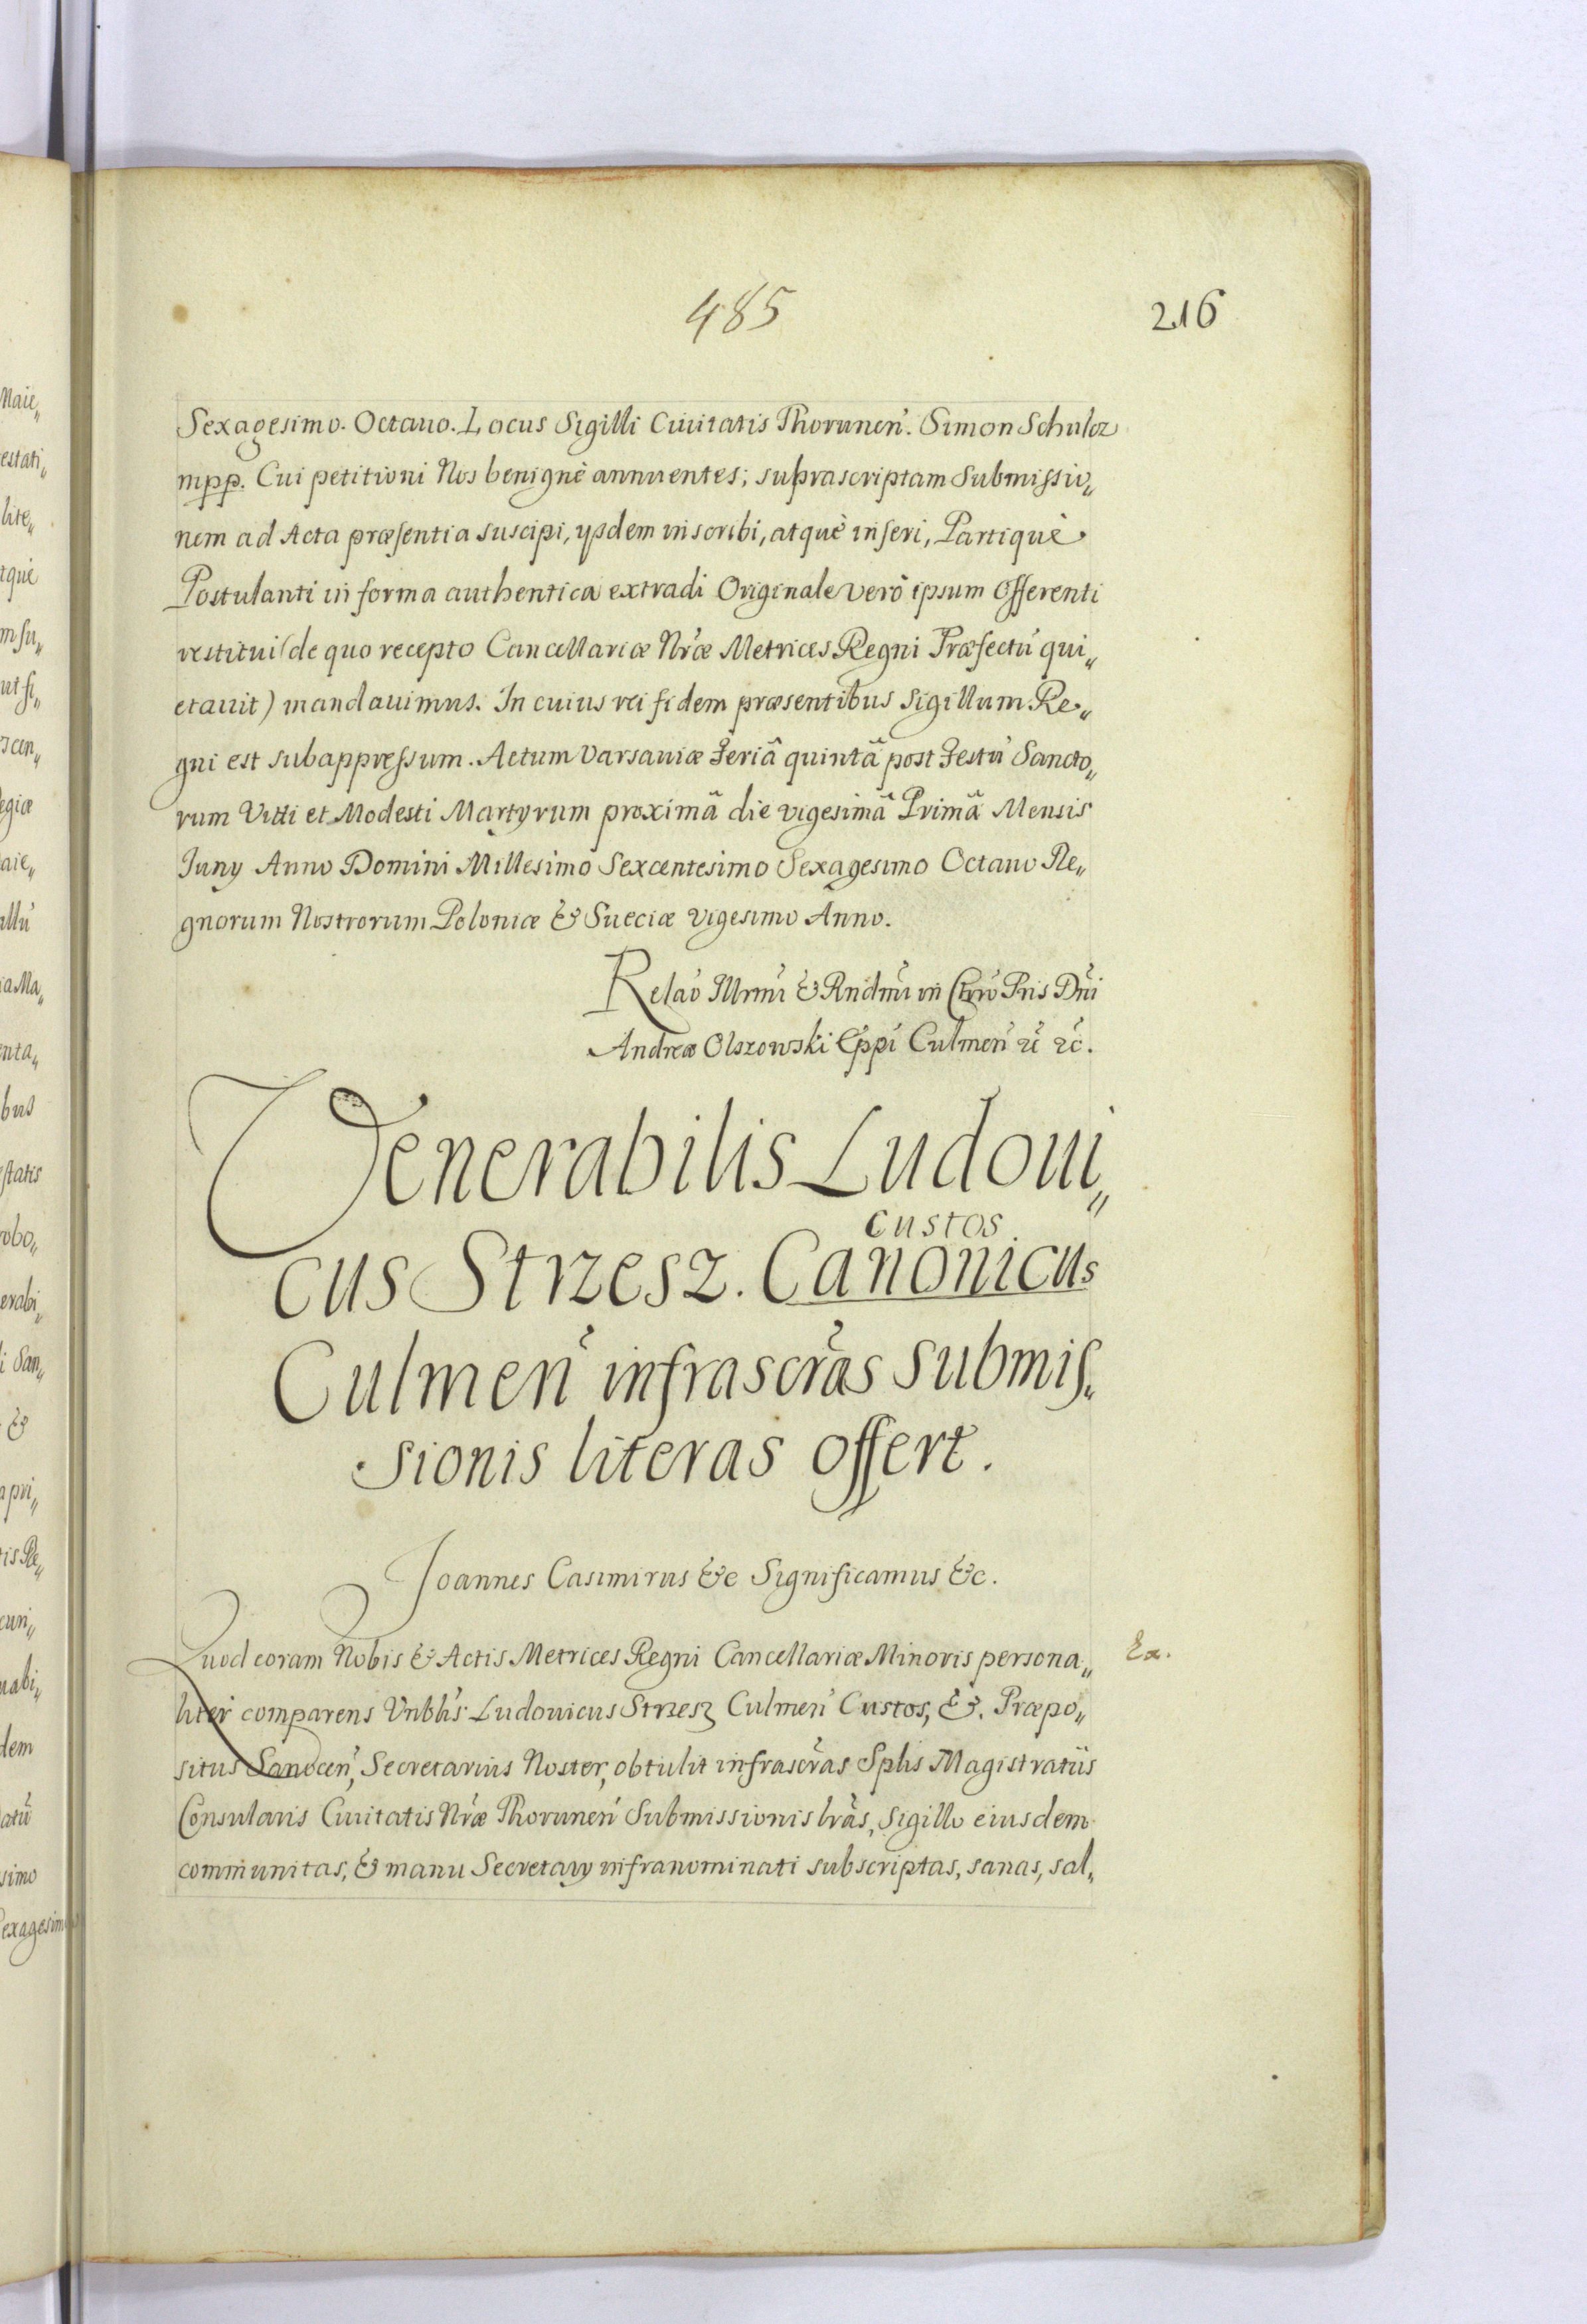 485
216
Sexagesimo. Octauo. Locus Sigilli Ciuitatis Thorunen̄. Simon Schulcz
mpp. Cui petitioni Nos benignè annuentes; suprascriptam Submissio„
nem ad Acta præsentia suscipi, ysdem inscribi, atquè inseri, Partiquè
Postulanti in forma authentica extradi Originale verò ipsum Offerenti
restitui (de quo recepto Cancellariæ Nr̄æ Metrices Regni Præfectū qui„
etauit) mandauimus. In cuius rei fidem præsentibus Sigillum Re„
gni est subappressum. Actum Varsauiæ Feriâ quintâ post Festū Sancto„
rum Viti et Modesti Martyrum proximâ die vigesimâ Primâ Mensis
Juny Anno Domini Millesimo Sexcentesimo Sexagesimo Octauo Re„
gnorum Nostrorum Poloniæ & Sueciæ vigesimo Anno.
Relāo Illrmi & Rndm̄i in Chr̄o Pris Dn̄i
Andreæ Olszowski Ep̄pi Culmen̄ &c̄ &c̄.
Venerabilis Ludoui„
custos
cus Strzesz. Canonicus
Culmen̄ infrascr̄as Submis„
sionis literas offert.
Joannes Casimirus &c Significamus &c.
Quod coram Nobis & Actis Metrices Regni Cancellariæ Minoris persona„
Ex.
liter comparens Vnbl̄is Ludouicus Strzesz Culmen̄ Custos, &. Præpo„
situs Sanocen̄, Secretarius Noster, obtulit infrascr̄as Splis Magistratûs
Consularis Ciuitatis Nr̄æ Thorunen̄ Submissionis lr̄as, Sigillo eiusdem
communitas, & manu Secretary infranominati subscriptas, sanas, sal„